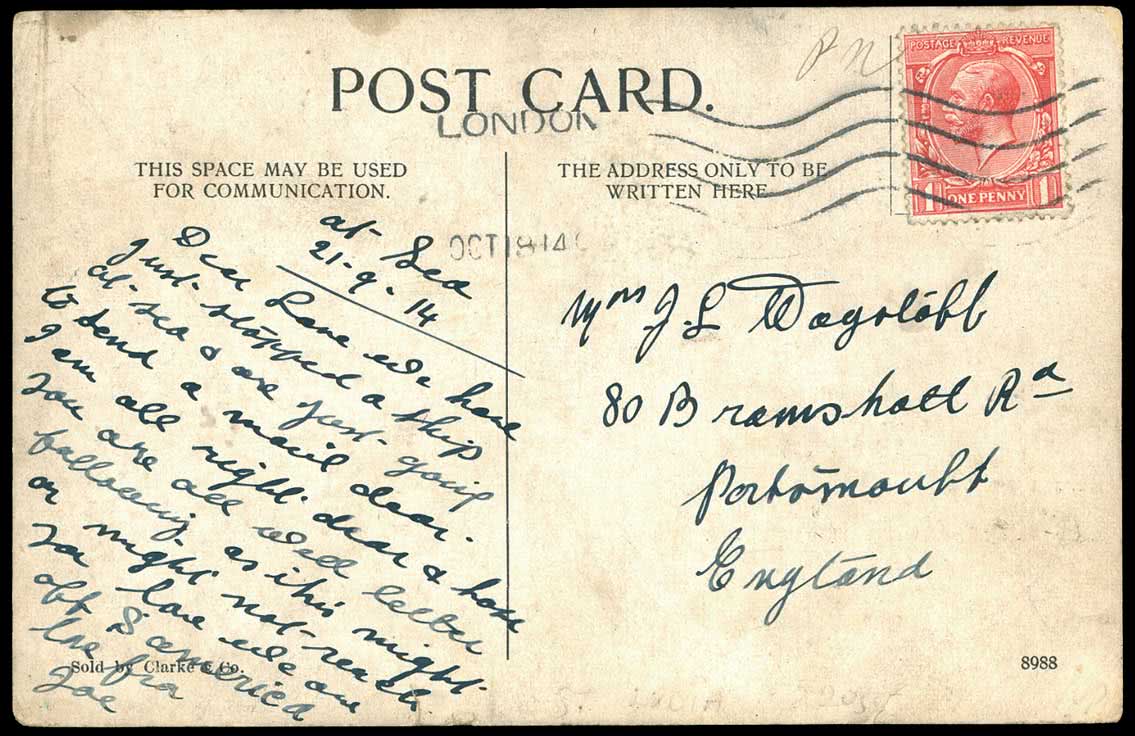 POST CARD.
LONDON
POSTAGE REVENUE
1 ONE PENNY 1
THIS SPACE MAY BE USED
FOR COMMUNICATION.
THE ADDRESS ONLY TO BE
WRITTEN HERE
OCT 18 14
at Sea
21-9-14
Dear Love we have
just stopped a ship
at sea & are just going
to send a mail dear.
I am all right dear & hope
you are all well letter
following as this might
or might not reach
you love we are
off S america
love fra
Joe
Mrs J L Wagstaff
80 Bramshott Rd
Portsmouth
England
Sold by Clarke & Co.
8988